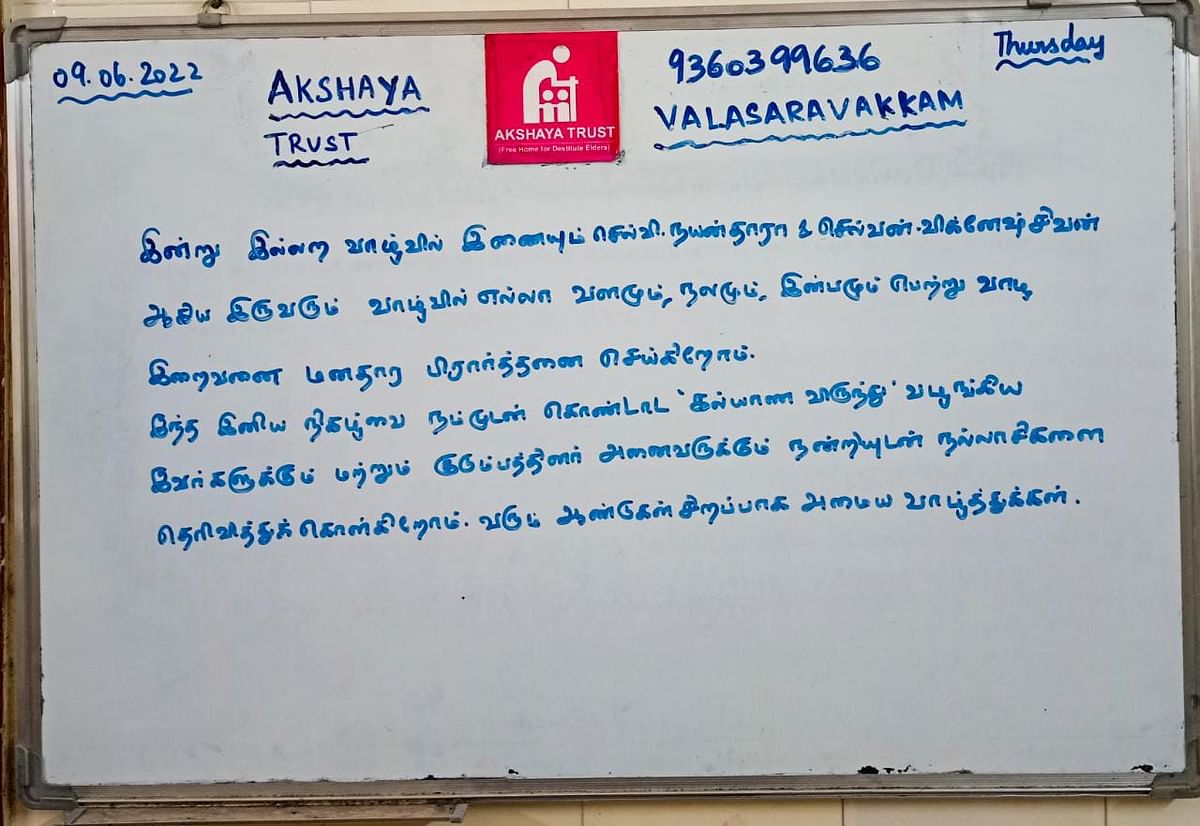 09.06.2022
AKSHAYA
TRUST
AKSHAYA TRUST
(Free Home for Destitute Elders)
9360399636
VALASARAVAKKAM
Thursday
இன்று இல்லற வாழ்வில் இணையும் செல்வி. நயன்தாரா & செல்வன். விக்னேஷ் சிவன்
ஆகிய இருவரும் வாழ்வில் எல்லா வளமும், நலமும், இன்பமும் பெற்று வாழ
இறைவனை மனதார பிரார்த்தனை செய்கிறோம்.
இந்த இனிய நிகழ்வை நம்முடன் கொண்டாட 'கல்யாண விருந்து' வழங்கிய
இவர்களுக்கும் மற்றும் குடும்பத்தினர் அனைவருக்கும் நன்றியுடன் நல்லாசிகளை
தெரிவித்துக் கொள்கிறோம். வரும் ஆண்டுகள் சிறப்பாக அமைய வாழ்த்துக்கள்.